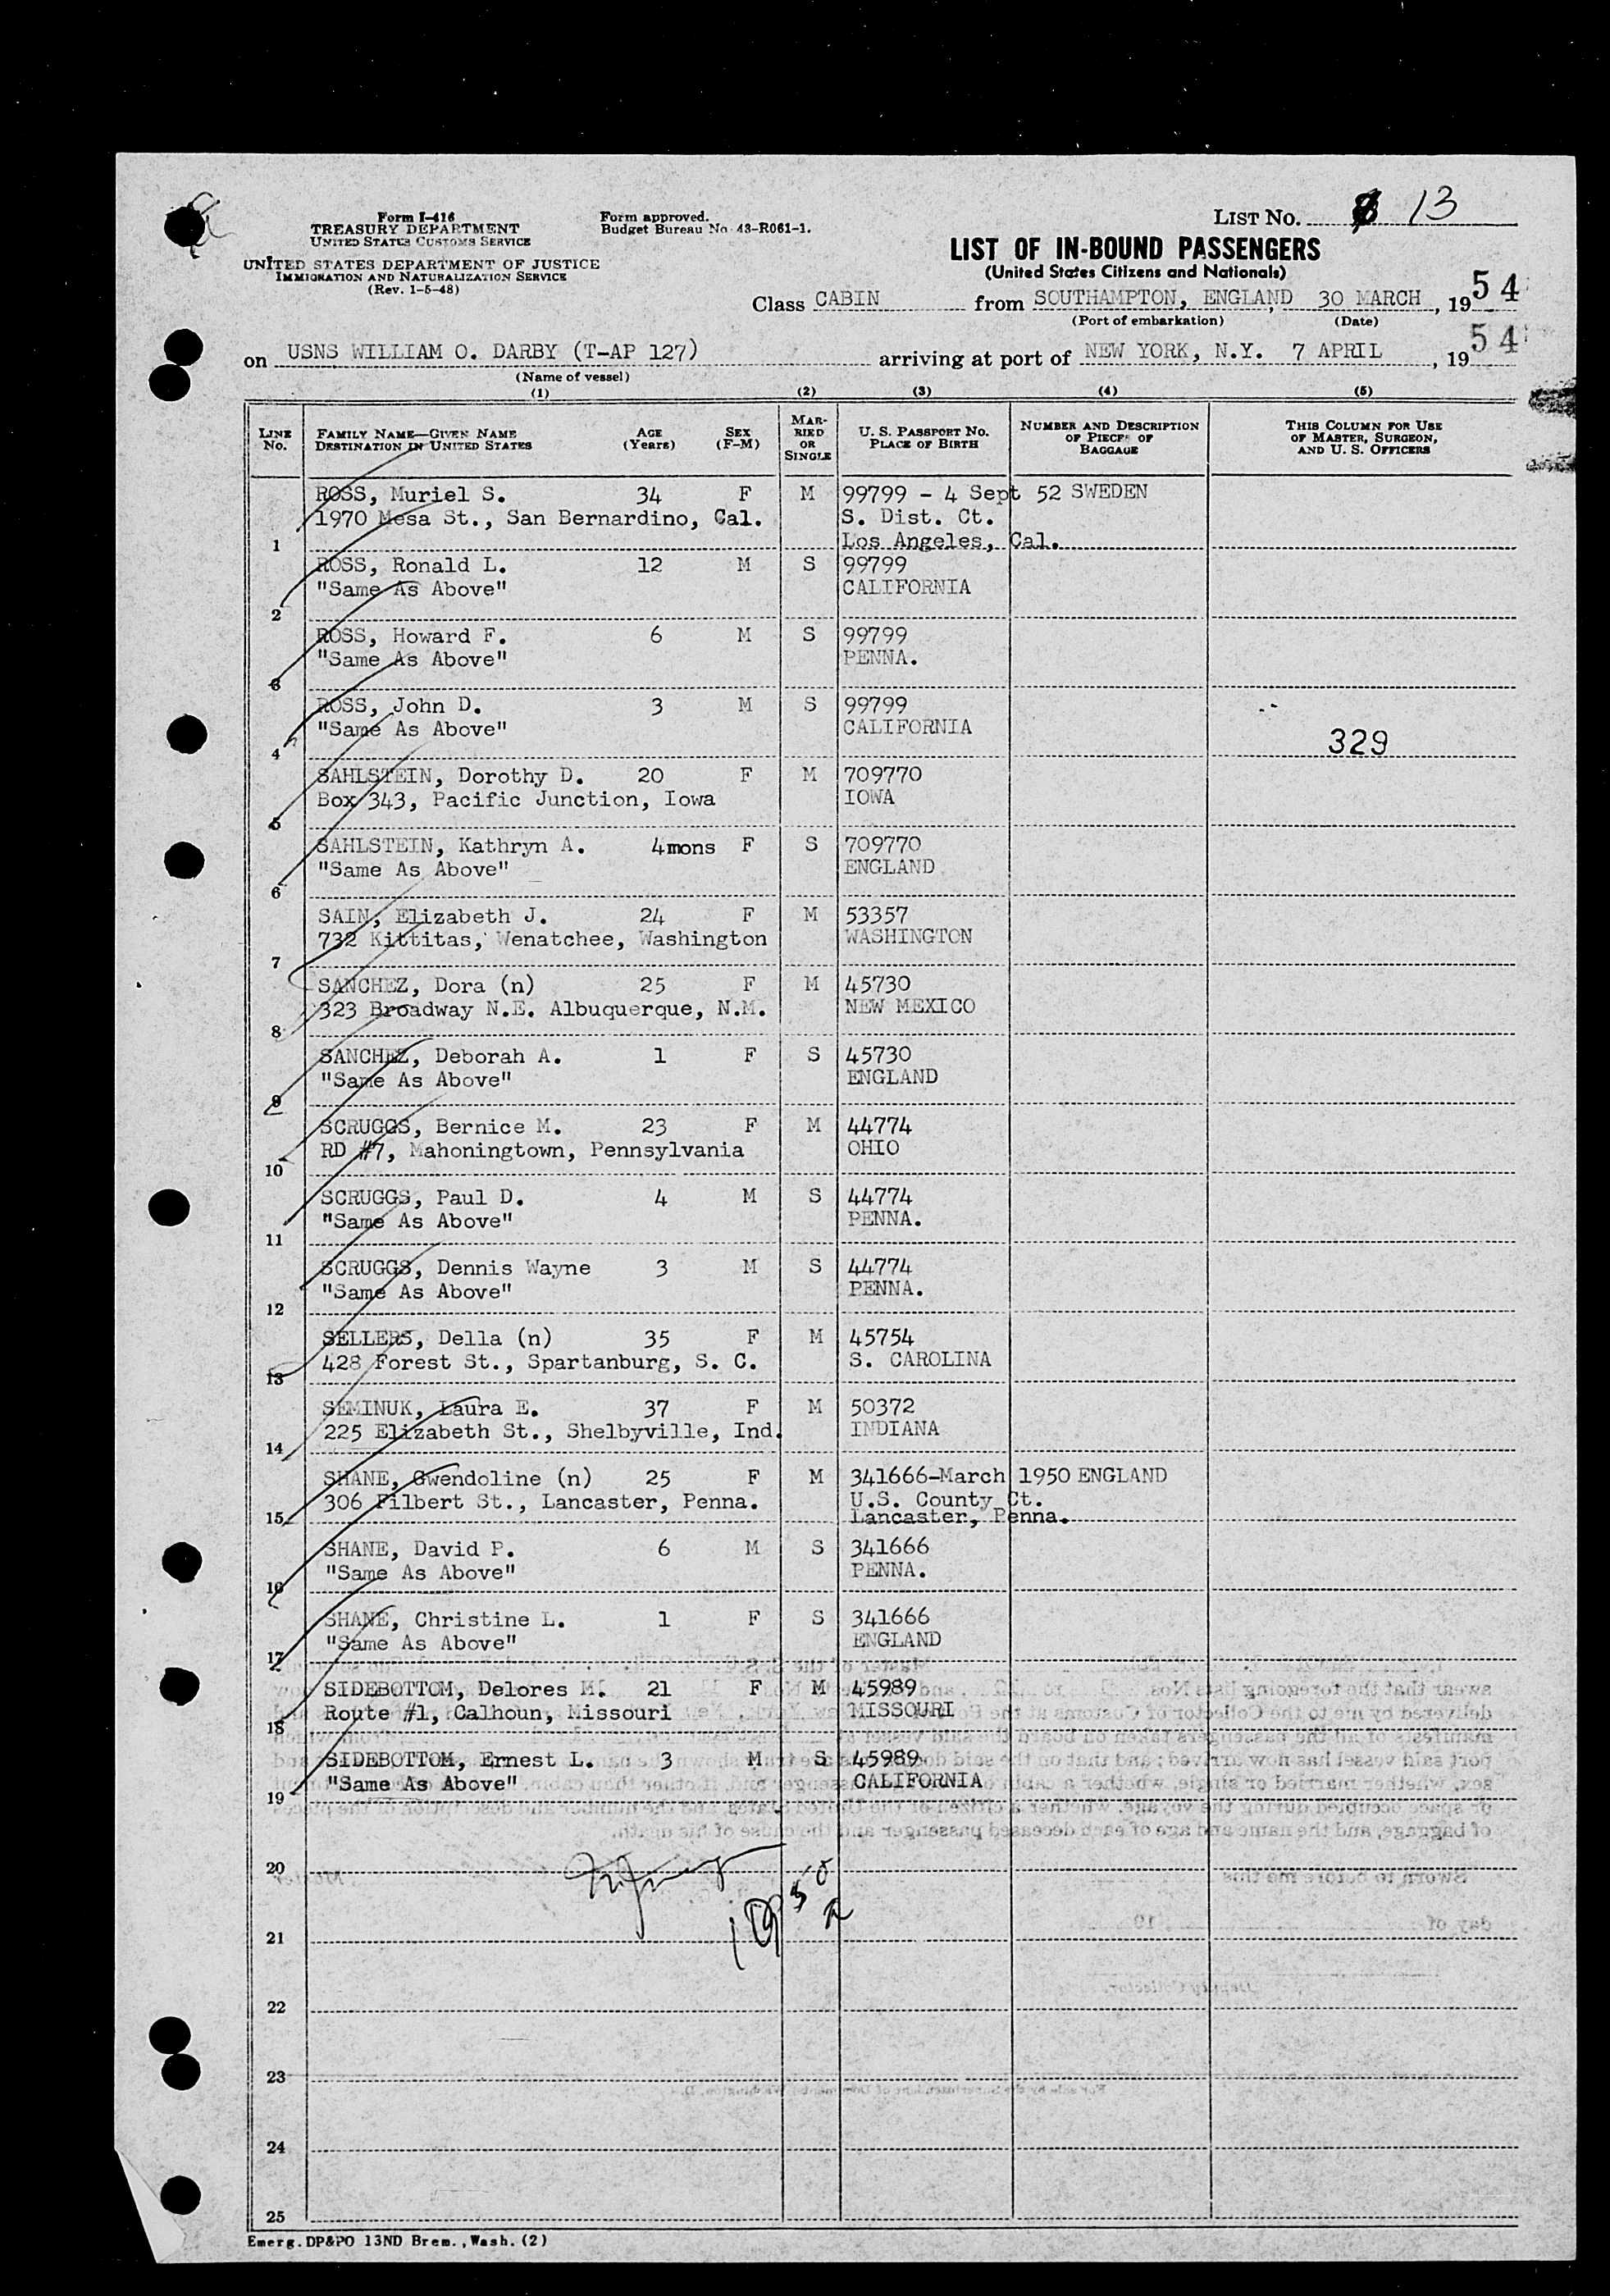 Form I-416
TREASURY DEPARTMENT
UNITED STATES CUSTOMS SERVICE
UNITED STATES DEPARTMENT OF JUSTICE
IMMIGRATION AND NATURALIZATION SERVICE
(Rev. 1-5-48)
Form approved.
Budget Bureau No. 43-R061-1.
LIST NO. 13
LIST OF IN-BOUND PASSENGERS
(United States Citizens and Nationals)
Class CABIN from SOUTHAMPTON, ENGLAND, 30 MARCH, 1954
(Port of embarkation) (Date)
on USNS WILLIAM O. DARBY (T-AP 127) arriving at port of NEW YORK, N.Y. 7 APRIL, 1954
(Name of vessel)
(1) (2) (3) (4) (5)
LINE NO. FAMILY NAME—GIVEN NAME DESTINATION IN UNITED STATES AGE (Years) SEX (F-M) MARRIED OR SINGLE U. S. PASSPORT NO. PLACE OF BIRTH NUMBER AND DESCRIPTION OF PIECES OF BAGGAGE THIS COLUMN FOR USE OF MASTER, SURGEON, AND U. S. OFFICERS
ROSS, Muriel S. 34 F M 99799 - 4 Sept 52 SWEDEN
1970 Mesa St., San Bernardino, Cal. S. Dist. Ct.
1 Los Angeles, Cal.
ROSS, Ronald L. 12 M S 99799
"Same As Above" CALIFORNIA
2
ROSS, Howard F. 6 M S 99799
"Same As Above" PENNA.
3
ROSS, John D. 3 M S 99799
"Same As Above" CALIFORNIA
4 329
SAHLSTEIN, Dorothy D. 20 F M 709770
Box 343, Pacific Junction, Iowa IOWA
5
SAHLSTEIN, Kathryn A. 4mons F S 709770
"Same As Above" ENGLAND
6
SAIN, Elizabeth J. 24 F M 53357
732 Kittitas, Wenatchee, Washington WASHINGTON
7
SANCHEZ, Dora (n) 25 F M 45730
323 Broadway N.E. Albuquerque, N.M. NEW MEXICO
8
SANCHEZ, Deborah A. 1 F S 45730
"Same As Above" ENGLAND
9
SCRUGGS, Bernice M. 23 F M 44774
RD #7, Mahoningtown, Pennsylvania OHIO
10
SCRUGGS, Paul D. 4 M S 44774
"Same As Above" PENNA.
11
SCRUGGS, Dennis Wayne 3 M S 44774
"Same As Above" PENNA.
12
SELLERS, Della (n) 35 F M 45754
428 Forest St., Spartanburg, S. C. S. CAROLINA
13
SEMINUK, Laura E. 37 F M 50372
225 Elizabeth St., Shelbyville, Ind. INDIANA
14
SHANE, Gwendoline (n) 25 F M 341666-March 1950 ENGLAND
306 Filbert St., Lancaster, Penna. U.S. County Ct.
15 Lancaster, Penna.
SHANE, David P. 6 M S 341666
"Same As Above" PENNA.
16
SHANE, Christine L. 1 F S 341666
"Same As Above" ENGLAND
17
SIDEBOTTOM, Delores M. 21 F M 45989
Route #1, Calhoun, Missouri MISSOURI
18
SIDEBOTTOM, Ernest L. 3 M S 45989
"Same As Above" CALIFORNIA
19
20
21
22
23
24
25
Emerg. DP&PO 13ND Brem., Wash. (2)